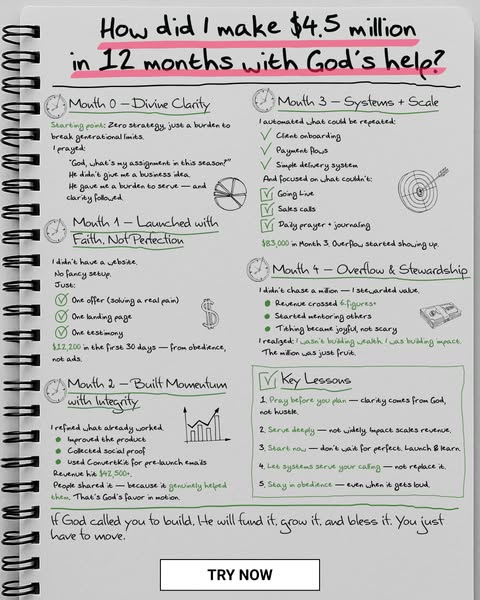 How did I make $4.5 million
in 12 months with God's help?
Mouth 0 – Divine Clarity
Starting point: Zero strategy, just a burden to
break generational limits.
I prayed:
"God, what's my assignment in this season?"
He didn't give me a business idea.
He gave me a burden to serve — and
clarity followed.
Mouth 1 – Launched with
Faith, Not Perfection
I didn't have a website.
No fancy setup.
Just:
One offer (solving a real pain)
One landing page
One testimony
$12,200 in the first 30 days — from obedience,
not ads.
Mouth 2 – Built Momentum
with Integrity
I refined what already worked.
Improved the product
Collected social proof
Used ConvertKit for pre-launch emails
Revenue hit $42,500+.
People shared it — because it genuinely helped
them. That's God's favor in motion.
Mouth 3 – Systems + Scale
I automated what could be repeated:
Client onboarding
Payment flows
Simple delivery system
And focused on what couldn't:
Going Live
Sales calls
Daily prayer + journaling
$83,000 in Month 3. Overflow started showing up.
Mouth 4 – Overflow & Stewardship
I didn't chase a million — I stewarded value.
Revenue crossed 6-figures+
Started mentoring others
Tithing became joyful, not scary
I realized: I wasn't building wealth. I was building impact.
The million was just fruit.
Key Lessons
1. Pray before you plan — clarity comes from God,
not hustle.
2. Serve deeply — not widely. Impact scales revenue.
3. Start now — don't wait for perfect. Launch & learn.
4. Let systems serve your calling — not replace it.
5. Stay in obedience — even when it gets loud.
If God called you to build, He will fund it, grow it, and bless it. You just
have to move.
TRY NOW